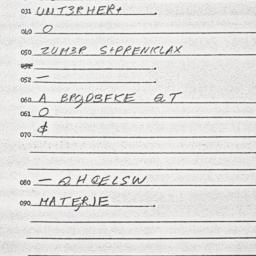 031 UNT3RHER+
040 O
050 ZUM3R S+PPENKLAX
051
052 —
060 A BPOD3FKE QT
061 O
070 ¢
080 — QHQELSW
090 MATERJE